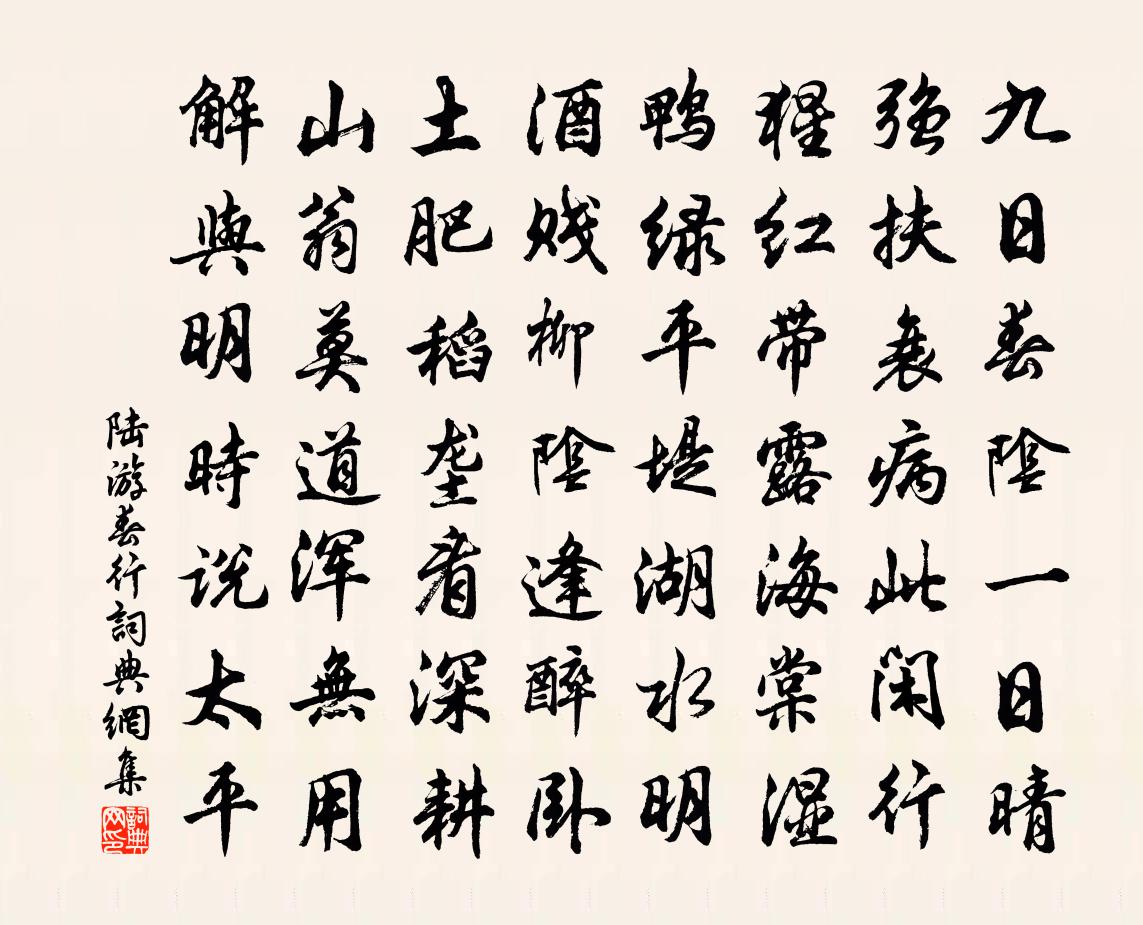 九日春陰一日晴
强扶衰病此闲行
猩红带露海棠湿
鸭绿平堤湖水明
酒贱柳陰逢醉卧
土肥稻垄看深耕
山翁莫道浑無用
解與明時说太平
陆游春行詞典網集
詞典網印